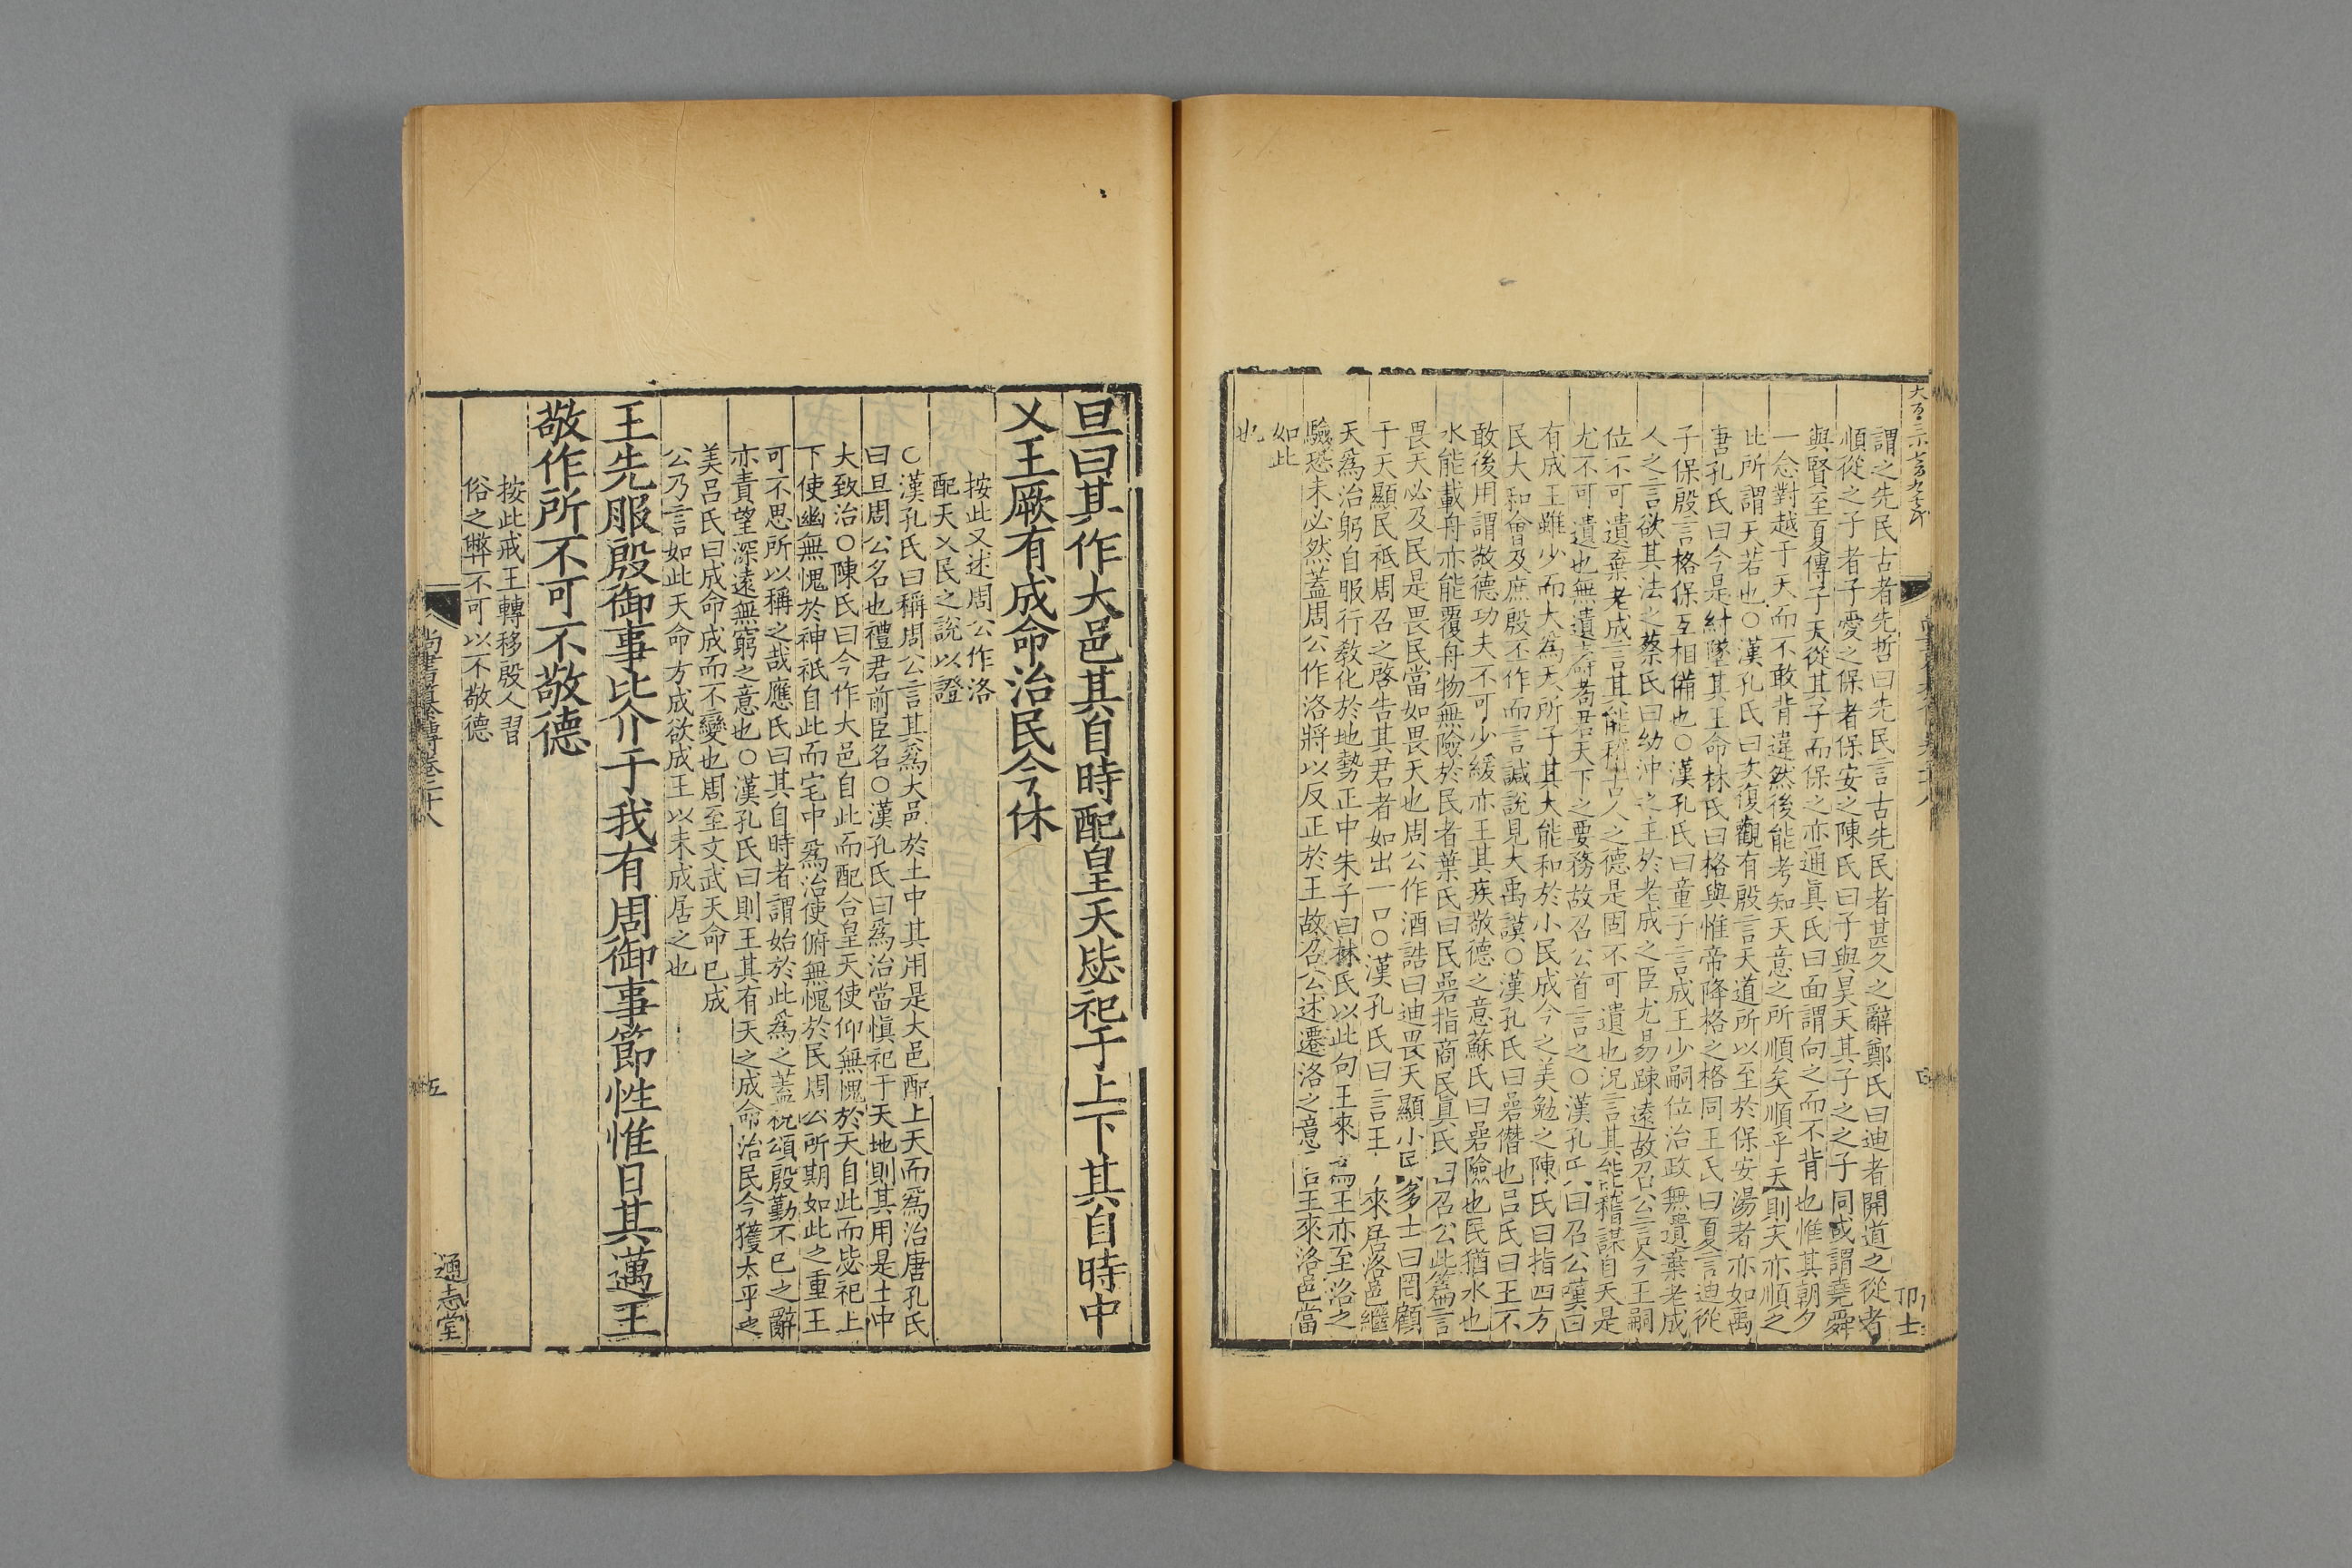 謂之先民古者先哲曰先民言古先民者甚久之辭鄭氏曰迪者開道之從者
順從之子者子愛之保者保安之陳氏曰子與昊天其子之之子同或謂堯舜
與賢至夏傳子天從其子而保之亦通眞氏曰面謂向之而不背也惟其朝夕
一念對越于天而不敢背違然後能考知天意之所順矣順乎天則天亦順之
此所謂天若也○漢孔氏曰次復觀有殷言天道所以至於保安湯者亦如禹
唐孔氏曰今是紂墜其王命林氏曰格與惟帝降格之格同王氏曰夏言迪從
子保殷言格保互相備也○漢孔氏曰童子言成王少嗣位治政無遺棄老成
人之言欲其法之蔡氏曰幼沖之主於老成之臣尤易踈遠故召公言今王嗣
位不可遺棄老成言其能稱古人之德是固不可遺也況言其能稽謀自天是
尤不可遺也無遺壽耇君天下之要務故召公首言之○漢孔氏曰召公嘆曰
有成王雖少而大爲天所子其大能和於小民成今之美勉之陳氏曰指四方
民大和會及庶殷丕作而言諴說見大禹謨○漢孔氏曰碞僭也呂氏曰王不
敢後用謂敬德功夫不可少緩亦王其疾敬德之意蘇氏曰碞險也民猶水也
水能載舟亦能覆舟物無險於民者葉氏曰民碞指商民眞氏曰召公此篇言
畏天必及民是畏民當如畏天也周公作酒誥曰迪畏天顯小民多士曰罔顧
于天顯民祇周召之啓告其君者如出一口○漢孔氏曰言王來居洛邑繼
天爲治躬自服行敎化於地勢正中朱子曰林氏以此句王來爲王亦至洛之
驗恐未必然蓋周公作洛將以反正於王故召公述遷洛之意言王來洛邑當
如此
也
旦曰其作大邑其自時配皇天毖祀于上下其自時中
乂王厥有成命治民今休
按此又述周公作洛
配天乂民之說以證
○漢孔氏曰稱周公言其爲大邑於土中其用是大邑配上天而爲治唐孔氏
曰旦周公名也禮君前臣名○漢孔氏曰爲治當愼祀于天地則其用是土中
大致治○陳氏曰今作大邑自此而配合皇天使仰無愧於天自此而毖祀上
下使幽無愧於神祇自此而宅中爲治使俯無愧於民周公所期如此之重王
可不思所以稱之哉應氏曰其自時者謂始於此爲之蓋祝頌殷勤不已之辭
亦責望深遠無窮之意也○漢孔氏曰則王其有天之成命治民今獲太平之
美呂氏曰成命成而不變也周至文武天命已成
公乃言如此天命方成欲成王以未成居之也
王先服殷御事比介于我有周御事節性惟日其邁王
敬作所不可不敬德
按此戒王轉移殷人習
俗之弊不可以不敬德
尚書纂傳卷二十八
五
通志堂